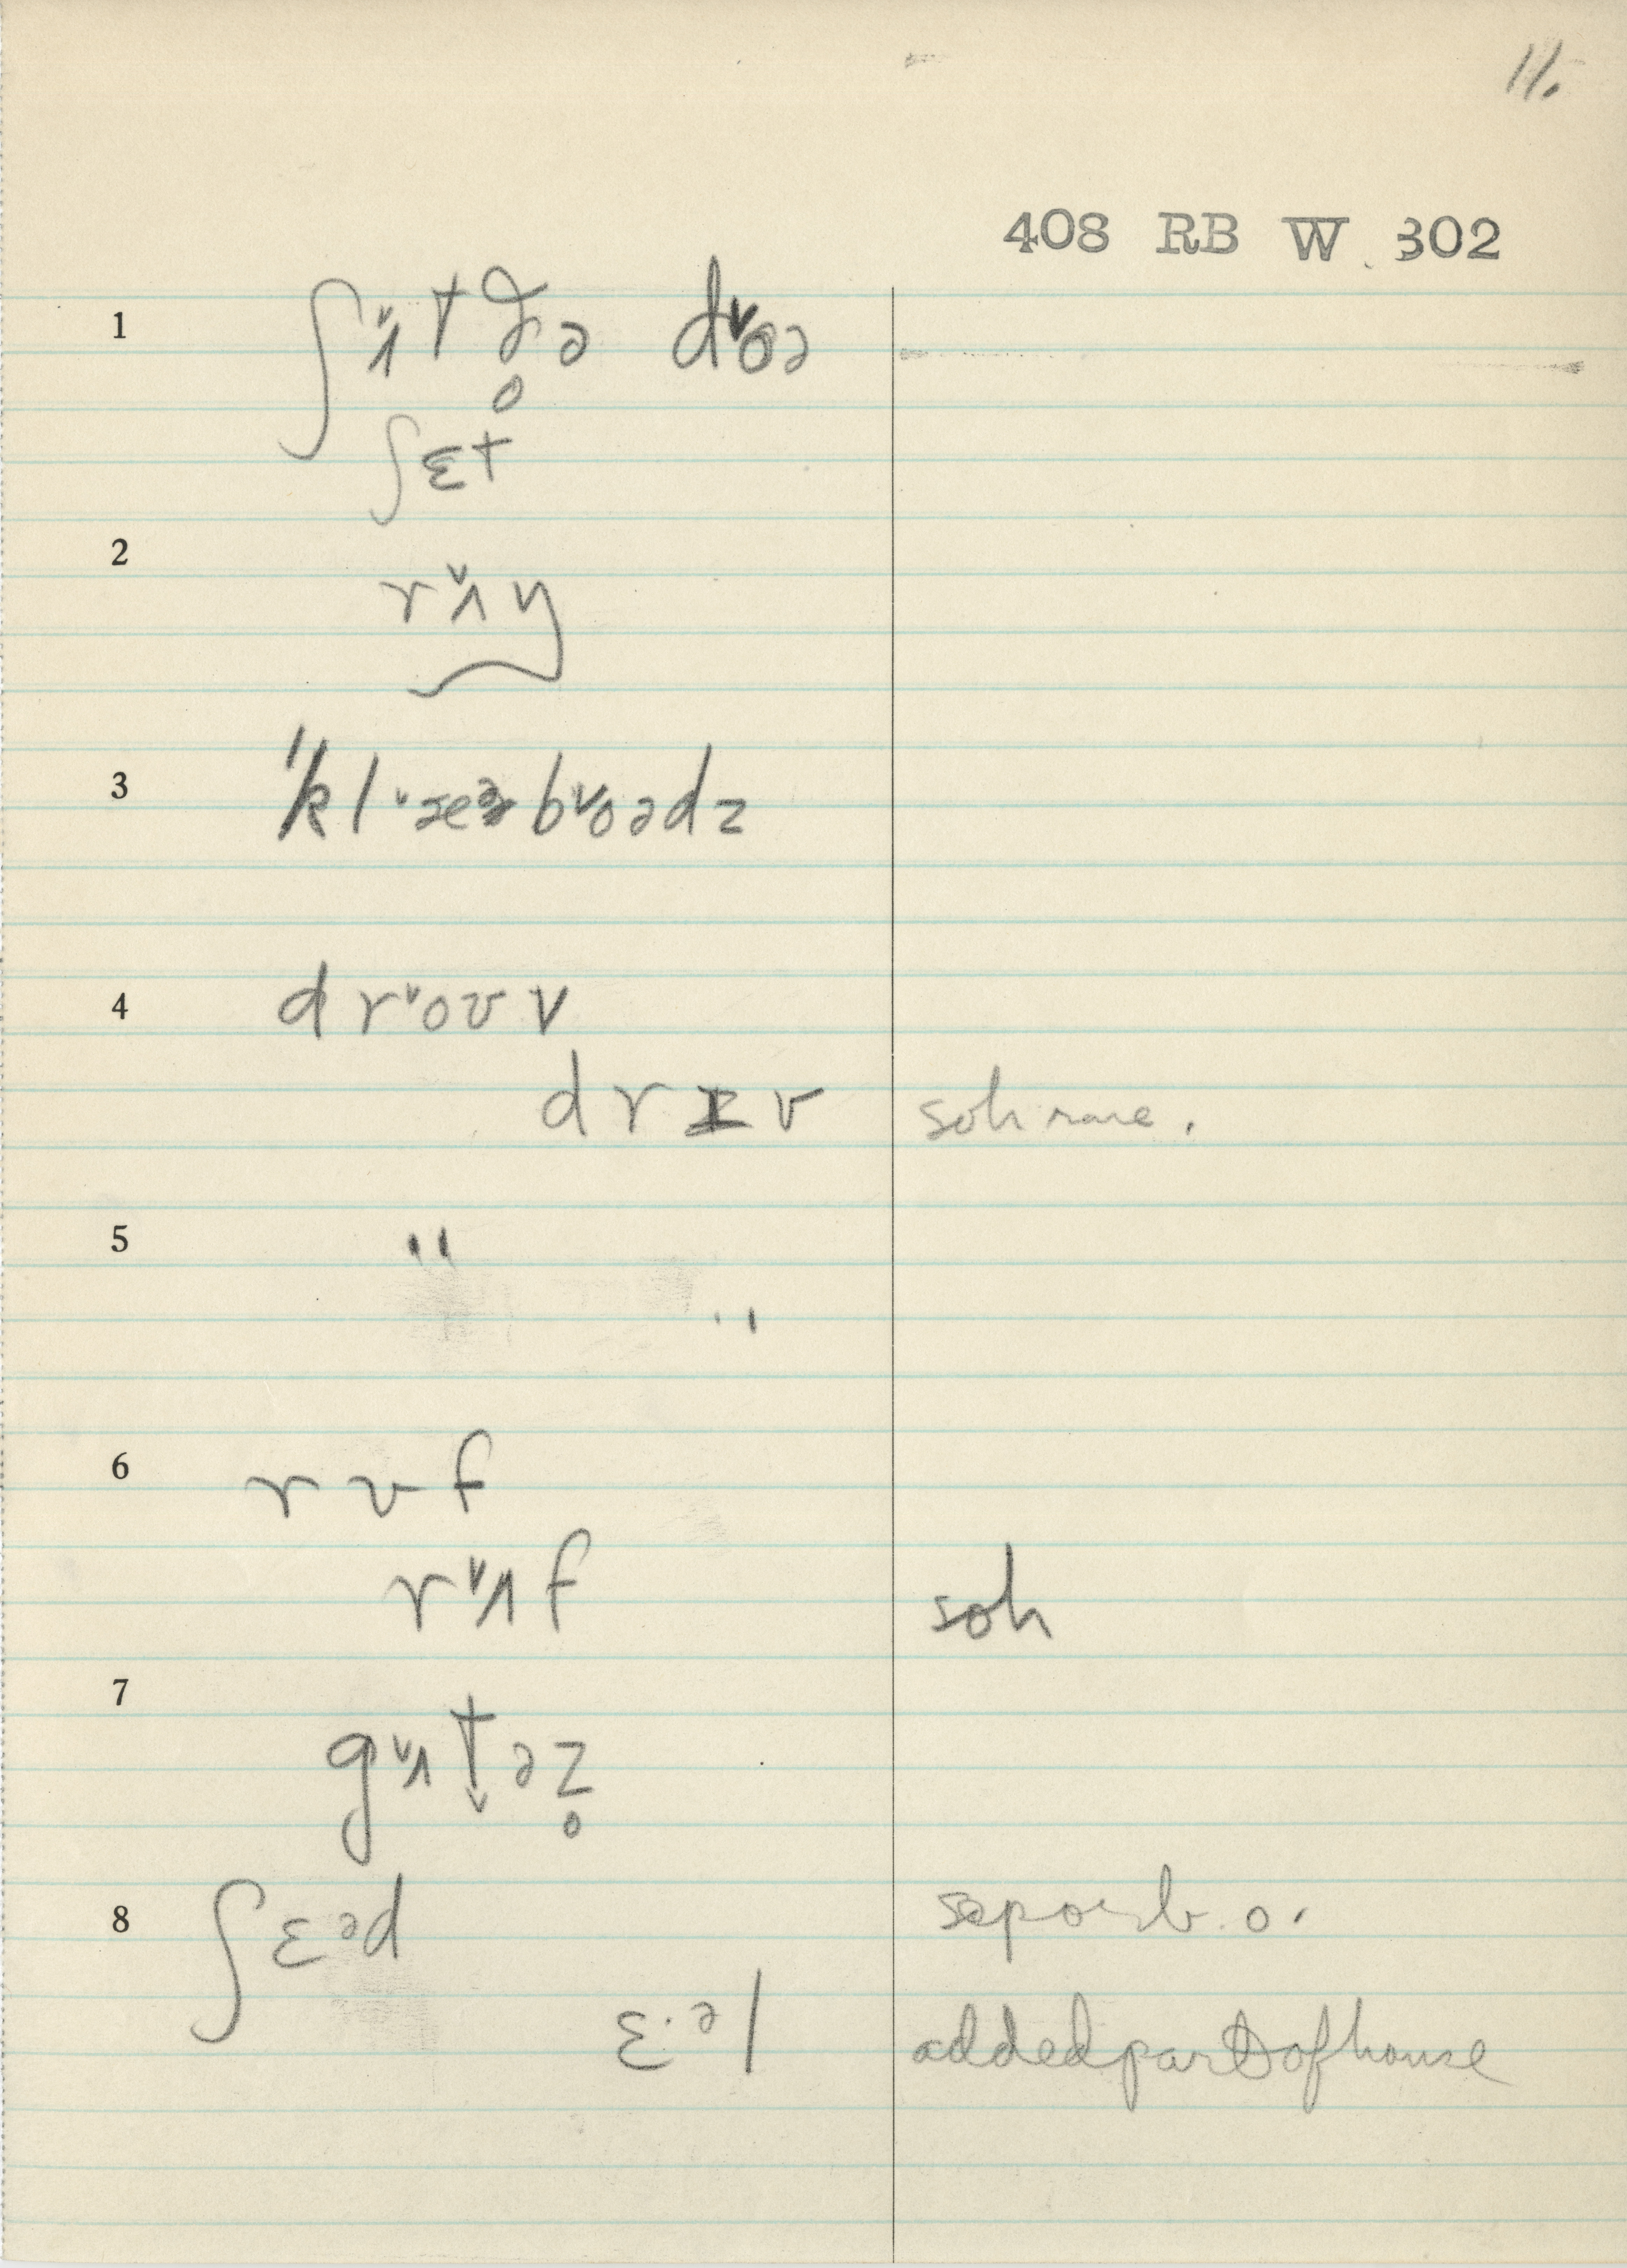 11.
408 RB W 302
1 ʃʌ˅t ð̥ə d˅oə
ʃɛt
2 rʌ˅ŋ
3 'kl˅æɛə b˅oədz
4 dr˅oʊv
drɪv soh rare.
5 "
"
6 rʊf
r˅ʌf soh
7 gʌ˅t̬əz̥
8 ʃɛᵊd sep or b. o.
ɛ·ᵊl added part of house